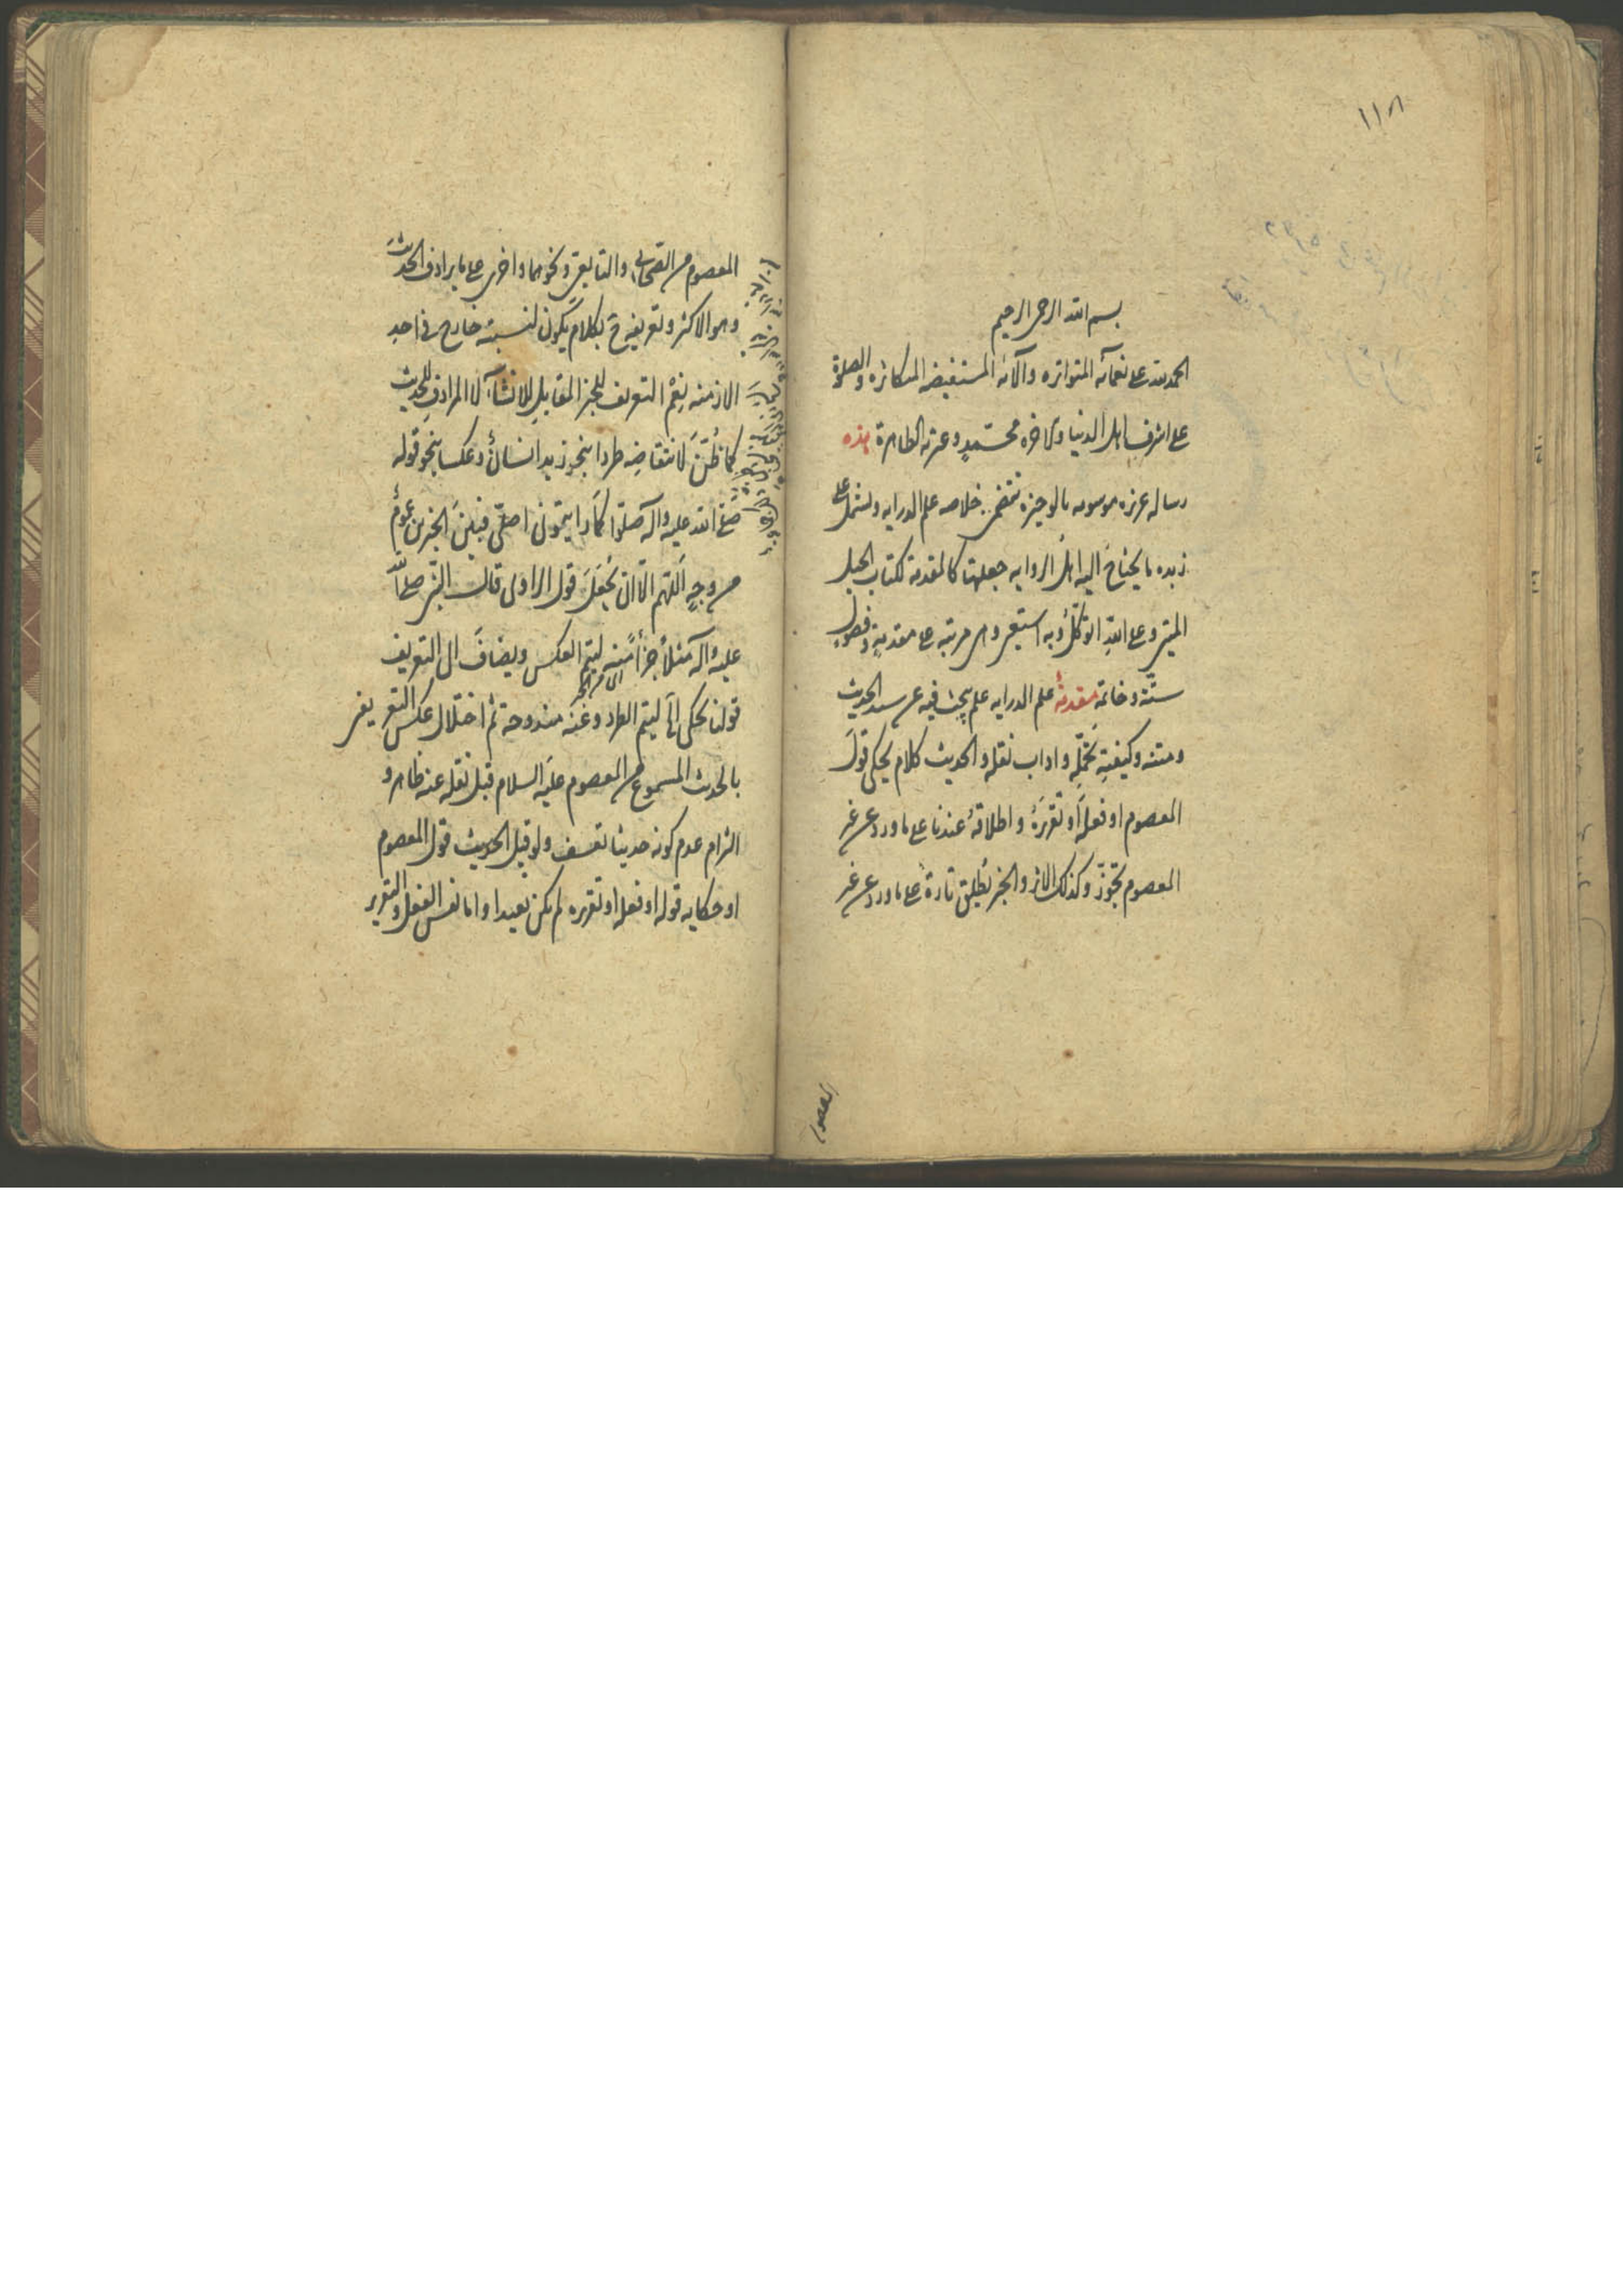 ١١٨
بسم الله الرحمن الرحيم
الحمد لله على نعمائه المتواتره وآلائه المستفيضه المتكاثره والصلوة
على اشرف اهل الدنيا والاخره محمد وعترته الطاهرة هذه
رساله عزيزه موسومه بالوجيزة تتضمن خلاصه علم الدرايه وتشتمل على
زبده ما يحتاج اليه اهل الروايه جعلتها كالمقدمة لكتاب الحبل
المتين وعلى الله اتوكل وبه استعين وهى مرتبه على مقدمة وفصول
ستة وخاتمة مقدمة علم الدرايه علم يبحث فيه عن سند الحديث
ومتنه وكيفية تحمله واداب نقله والحديث كلام يحكى قول
المعصوم او فعله او تقريره واطلاقه عندنا على ما ورد عن غير
المعصوم تجوز وكذلك الاثر والخبر يطلق تارة على ما ورد عن غير
المعصوم
المعصوم من الصحابى والتابعى ونحوهما واخرى على ما يرادف الحديث
وهو الاكثر وتعريفه ح بكلام يكون لنسبته خارج فى احد
الازمنه نعم التعريف للخبر المقابل للانشآء لا المرادف للحديث
كما ظن لانتقاضه طردا بنحو زيد انسان وعكسا بنحو قوله
صلى الله عليه وآله صلوا كما رايتمونى اصلى فبين الخبرين عموم
من وجه اللهم الا ان يجعل قول الراوى قال النبى صلى الله
عليه وآله مثلا جزأ منه ليتم العكس ويضاف الى التعريف
قولنا يحكى الخ ليتم الطرد وعنه مندوحة ثم اختلال عكس التعريفين
بالحديث المسموع من المعصوم عليه السلام قبل نقله عنه ظاهر و
التزام عدم كونه حديثا تعسف ولو قيل الحديث قول المعصوم
او حكايه قوله او فعله او تقريره لم يكن بعيدا واما نفس الفعل والتقرير